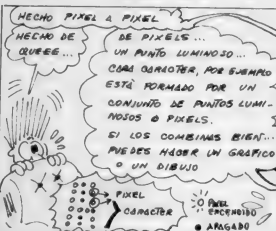 HECHO PIXEL A PIXEL
HECHO DE
QUEEE...
DE PIXELS...
UN PUNTO LUMINOSO...
CADA CARACTER, POR EJEMPLO
ESTÁ FORMADO POR UN
CONJUNTO DE PUNTOS LUMI-
NOSOS O PIXELS.
SI LOS COMBINAS BIEN...
PUEDES HACER UN GRAFICO
O UN DIBUJO
PIXEL
CARACTER
PIXEL
ENCENDIDO
APAGADO